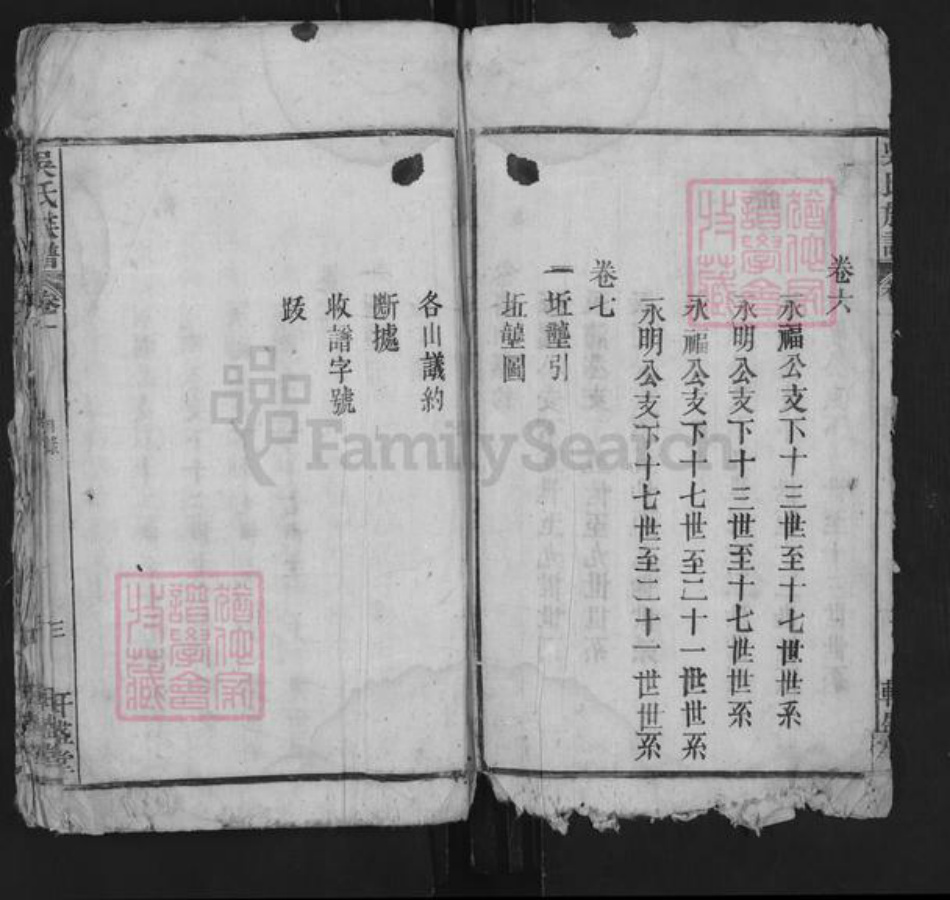 卷六
永福公支下十三世至十七世世系
永明公支下十三世至十七世世系
永福公支下十七世至二十一世世系
永明公支下十七世至二十一世世系
卷七
一坵壟引
坵壟圖
各山議約
斷據
收譜字號
跋
吳氏族譜
卷一
三
FamilySearch